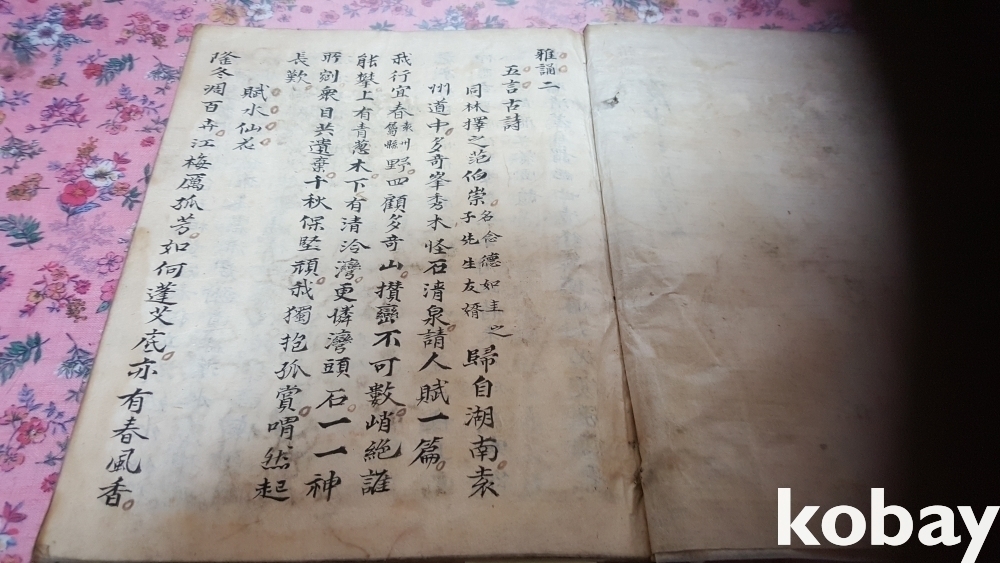 雅誦二
五言古詩
同林擇之范伯崇名念德如圭之子先生友婿歸自湖南袁
州道中多奇峯秀木怪石清泉請人賦一篇
我行宜春袁州屬縣野四顧多奇山攢巒不可數峭絶誰
能攀上有青蔥木下有清泠灣更憐灣頭石一一神
所剜衆目共遺棄千秋保堅頑我獨抱孤賞喟然起
長歎
賦水仙花
隆冬凋百卉江梅厲孤芳如何蓬艾底亦有春風香
kobay